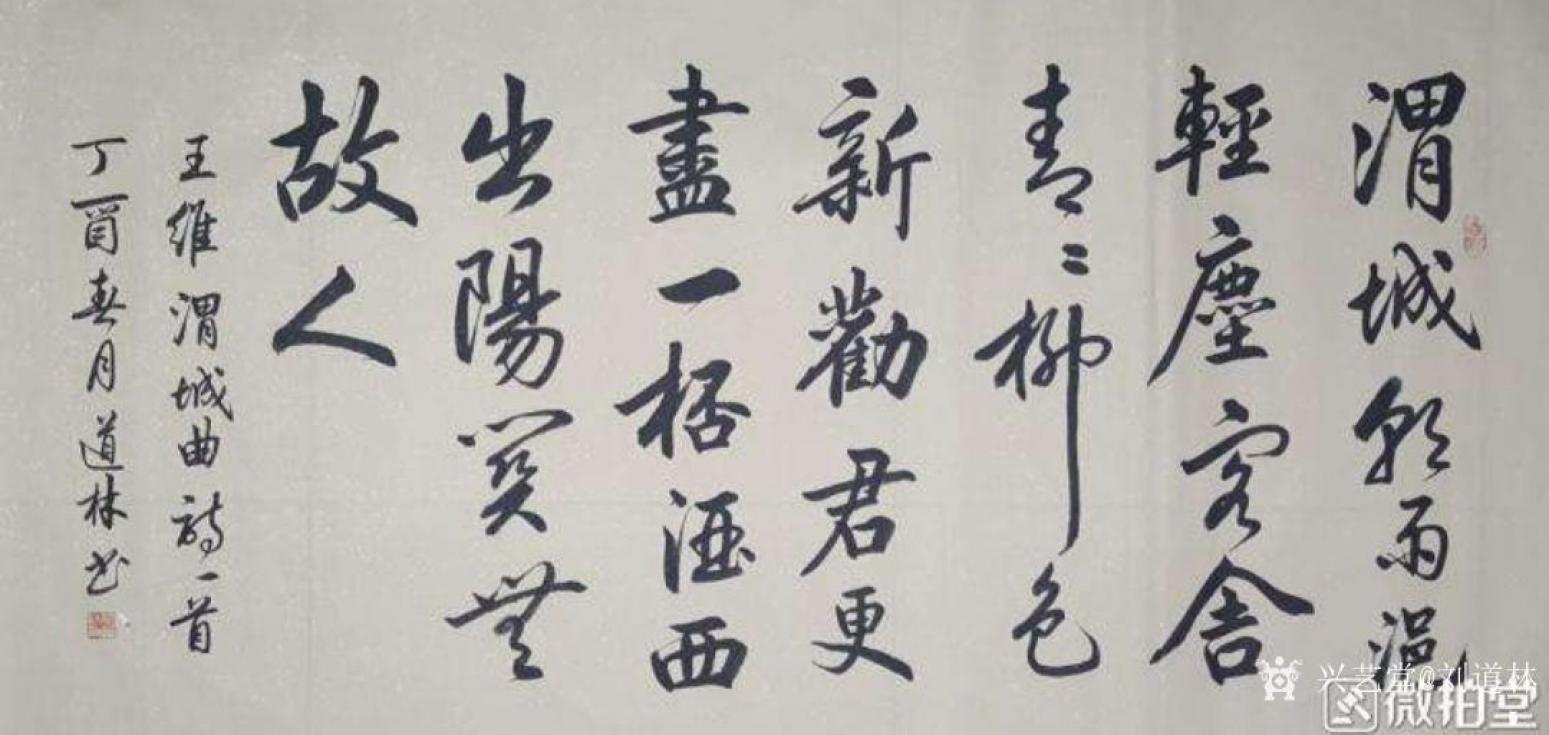 渭城朝雨浥
輕塵客舍
青〻柳色
新勸君更
盡一杯酒西
出陽関無
故人
王維渭城曲詩一首
丁酉春月道林书
兴艺堂@刘道林
微拍堂